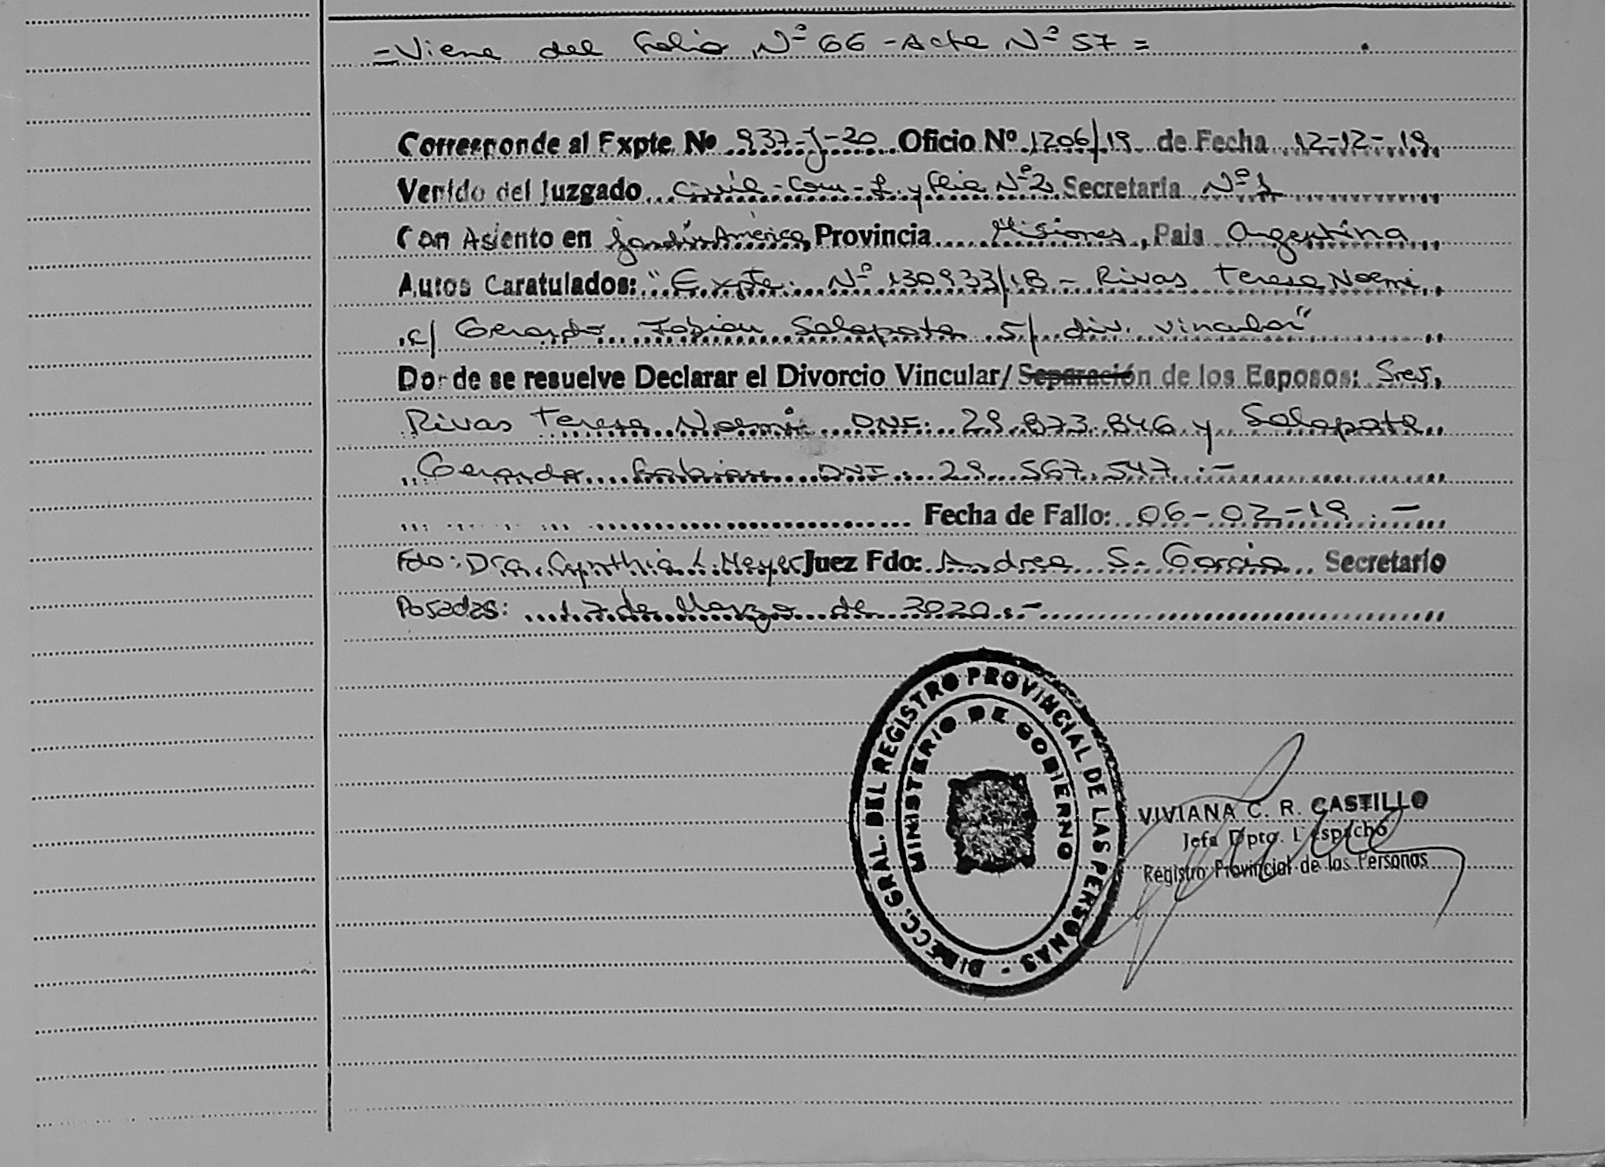 =Viene del Folio Nº 66 - Acta Nº 57=
Corresponde al Expte No 937-J-20 Oficio Nº 1206/19 de Fecha 12-12-19
Venido del Juzgado Civil-Com-L. y Flia Nº2 Secretaria Nº 1
Con Asiento en Jardín América, Provincia Misiones, Pais Argentina
Autos Caratulados: "Expte. Nº 130933/18 - Rivas Teresa Noemi
c/ Gerardo Fabian Salapata s/ div. vincular"
Donde se resuelve Declarar el Divorcio Vincular/ Separación de los Esposos: Sres,
Rivas Teresa Noemi DNI: 29.873.846 y Salapata
Gerardo Fabian DNI: 29.567.547.-
Fecha de Fallo: 06-02-19.-
Fdo: Dra. Cynthia L. Meyer Juez Fdo: Andrea S. Garcia Secretario
Posadas: 17 de Marzo de 2020.-
DIRECC. GRAL. DEL REGISTRO PROVINCIAL DE LAS PERSONAS -
MINISTERIO DE GOBIERNO
VIVIANA C. R. CASTILLO
Jefa Dpto. Despacho
Registro Provincial de las Personas